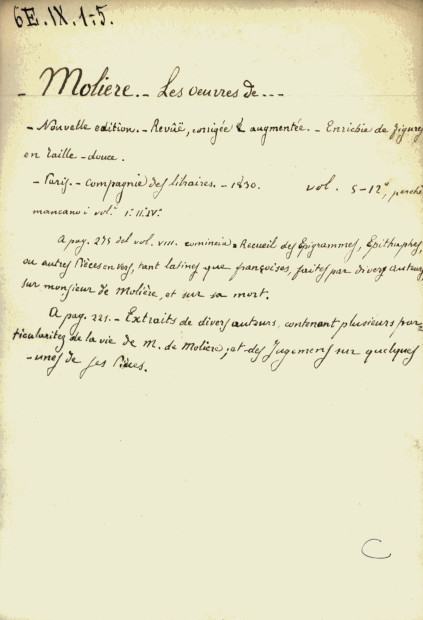 6E.IX.1-5.
- Molière. - Les oeuvres de - - -
- Nouvelle edition. - Revûë, corrigée & augmentée. - Enrichie de figures
en taille-douce.
- Paris. - Compagnie des libraires. - 1730. vol. 5-12°, perchè
mancano i vol. I. II. IV.
A pag. 215 del vol. VIII. comincia: Recueil des Epigrammes, Epithaphes,
ou autres Pièces en vers, tant latines que françoises, faites par divers auteurs,
sur monsieur de Molière, et sur sa mort.
A pag. 221. - Extraits de divers auteurs, contenant plusieurs par=
ticularitez de la vie de M. de Molière, et des Jugemens sur quelques
-unes de ses Pièces.
C